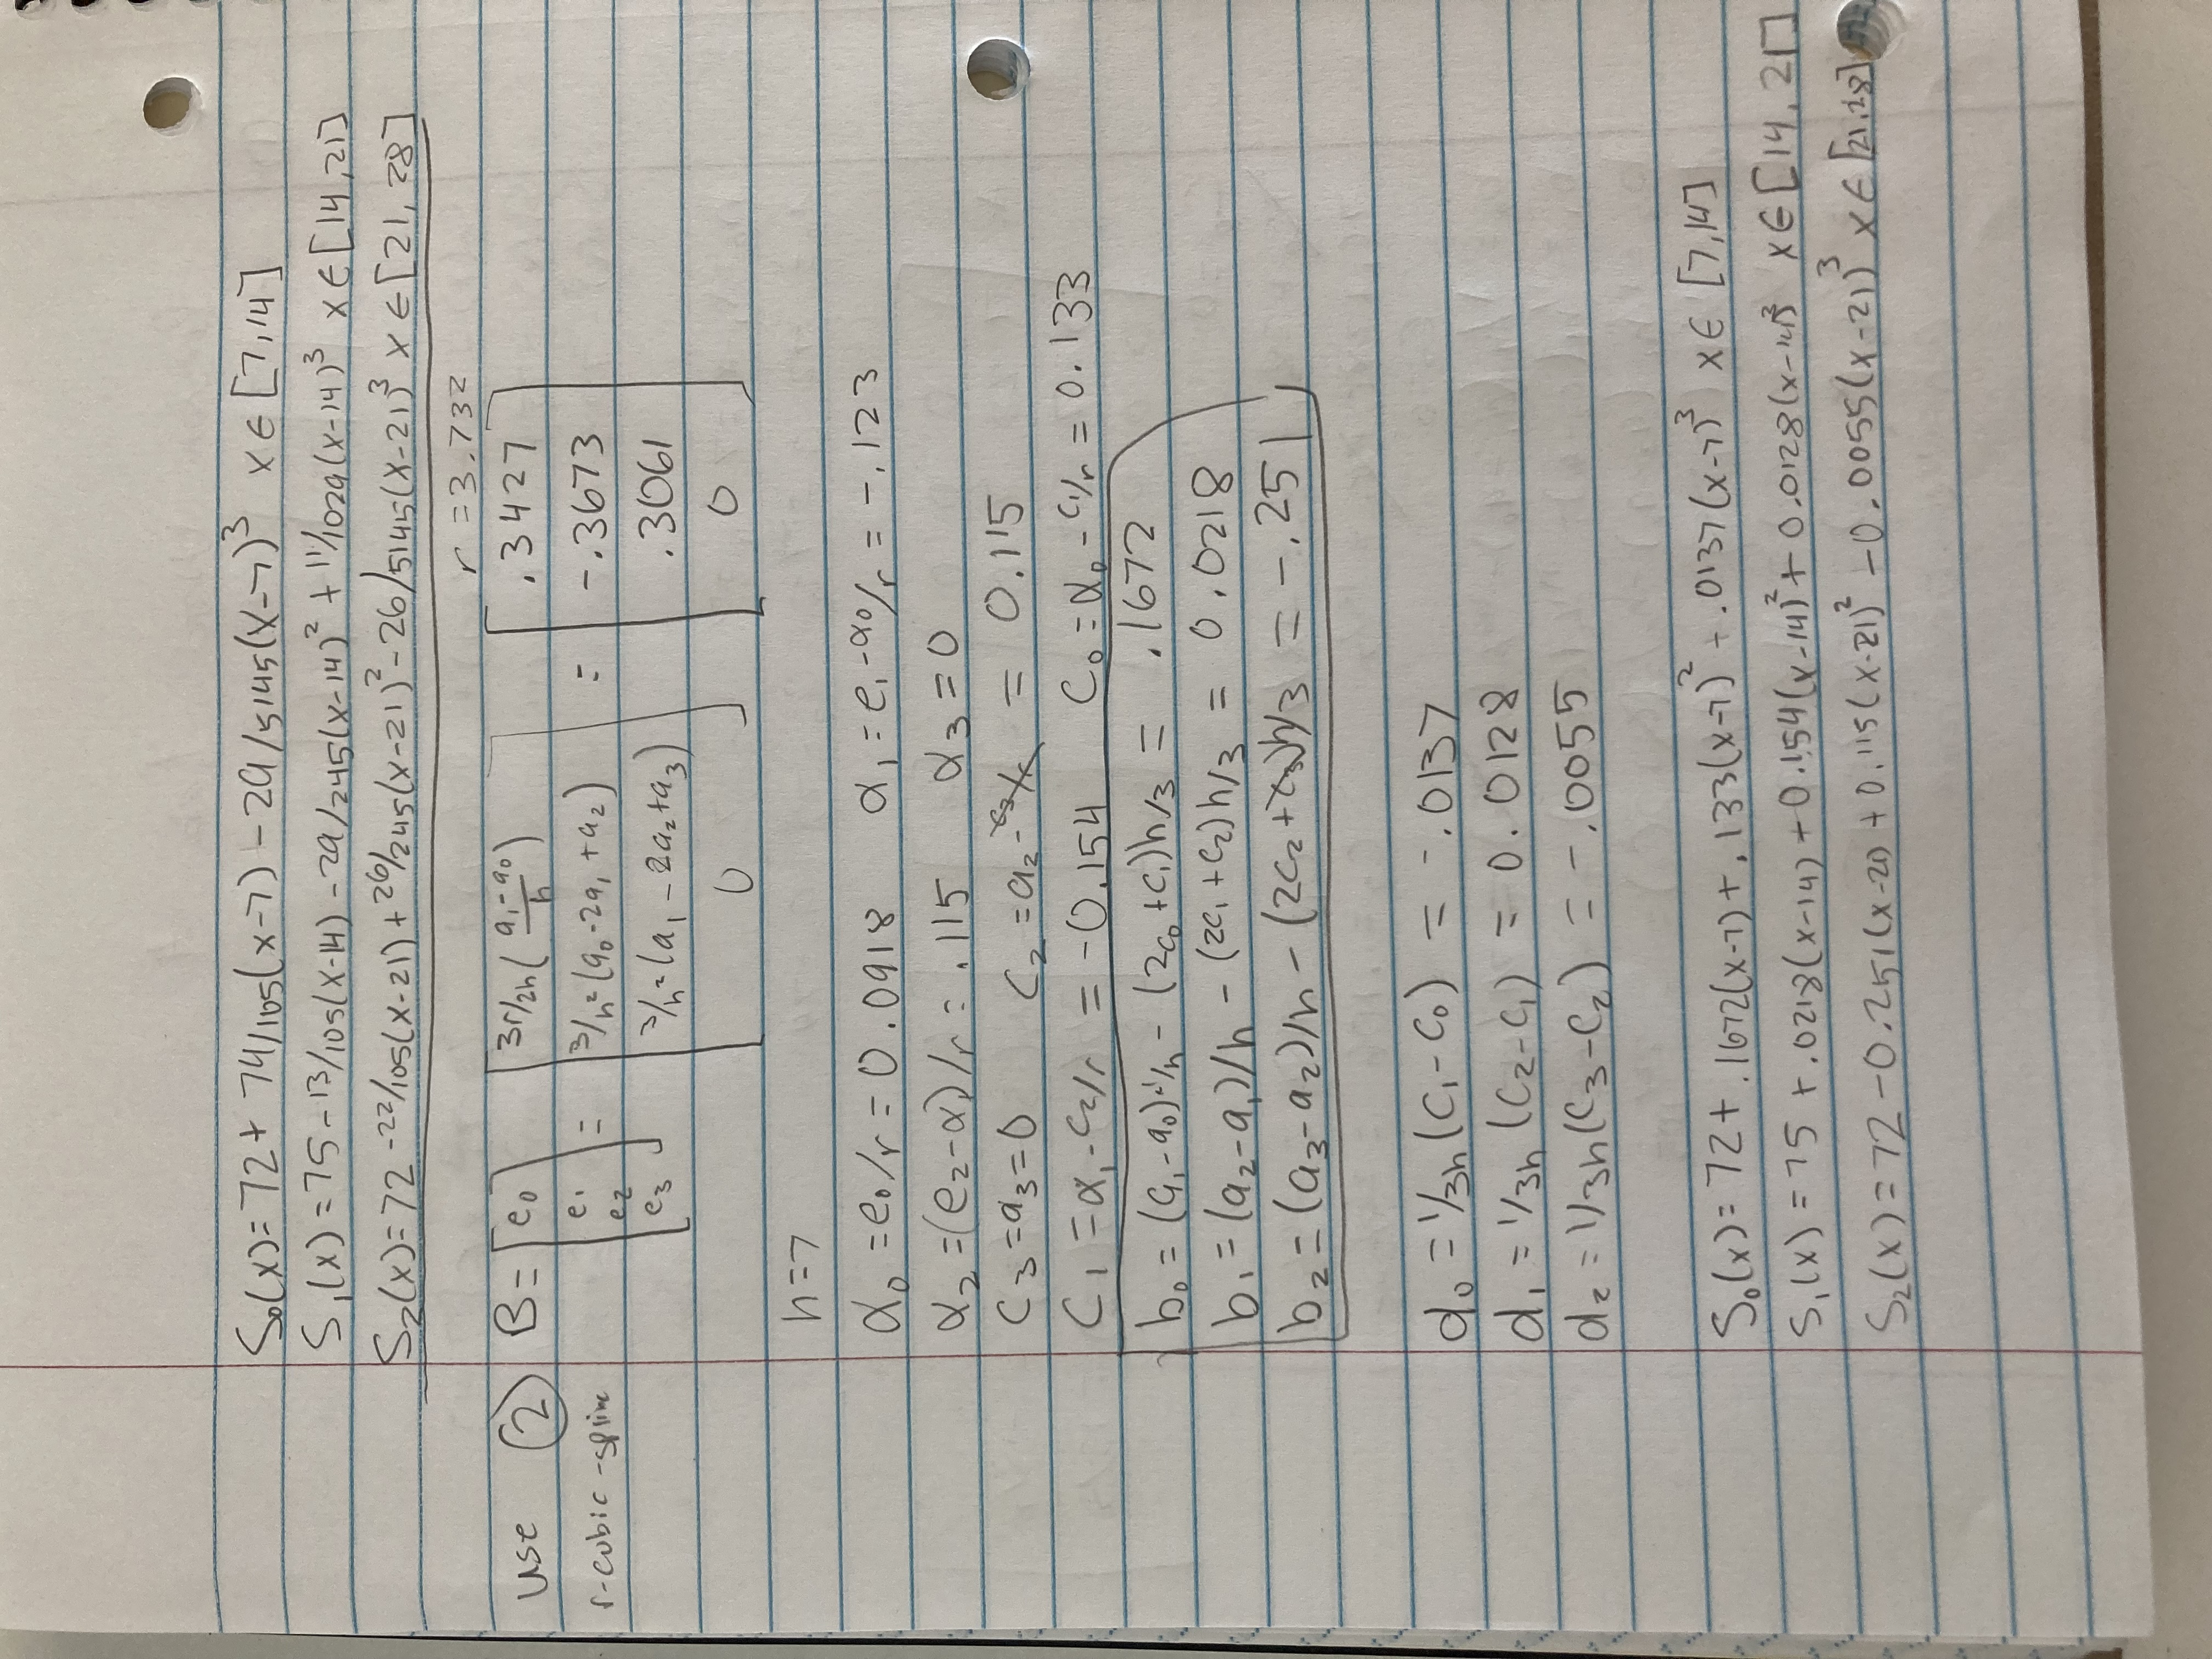 S₀(x) = 72 + 74/105(x-7) - 29/5145(x-7)³ x ∈ [7,14]
S₁(x) = 75 - 13/105(x-14) - 29/245(x-14)² + 11/1029(x-14)³ x ∈ [14,21]
S₂(x) = 72 - 22/105(x-21) + 26/245(x-21)² - 26/5145(x-21)³ x ∈ [21,28]
r = 3.732
use r-cubic-spline ② B = [e₀ e₁ e₂ e₃] = [3r/2h((a₁-a₀)/h) 3/h²(a₀-2a₁+a₂) 3/h²(a₁-2a₂+a₃) 0] = [.3427 -.3673 .3061 0]
h=7
α₀ = e₀/r = 0.0918 α₁ = e₁-α₀/r = -.123
α₂ = (e₂-α₁)/r = .115 α₃ = 0
C₃ = a₃ = 0 C₂ = a₂ - c₃/r = 0.115
C₁ = α₁ - C₂/r = -0.154 C₀ = α₀ - C₁/r = 0.133
b₀ = (a₁-a₀)·1/h - (2c₀+c₁)h/3 = .1672
b₁ = (a₂-a₁)/h - (2c₁+c₂)h/3 = 0.0218
b₂ = (a₃-a₂)/h - (2c₂+c₃)h/3 = -.251
d₀ = 1/3h (C₁-C₀) = -.0137
d₁ = 1/3h (C₂-C₁) = 0.0128
d₂ = 1/3h (C₃-C₂) = -.0055
S₀(x) = 72 + .1672(x-7) + .133(x-7)² - .0137(x-7)³ x ∈ [7,14]
S₁(x) = 75 + .0218(x-14) - 0.154(x-14)² + 0.0128(x-14)³ x ∈ [14,21]
S₂(x) = 72 - 0.251(x-21) + 0.115(x-21)² - 0.0055(x-21)³ x ∈ [21,28]